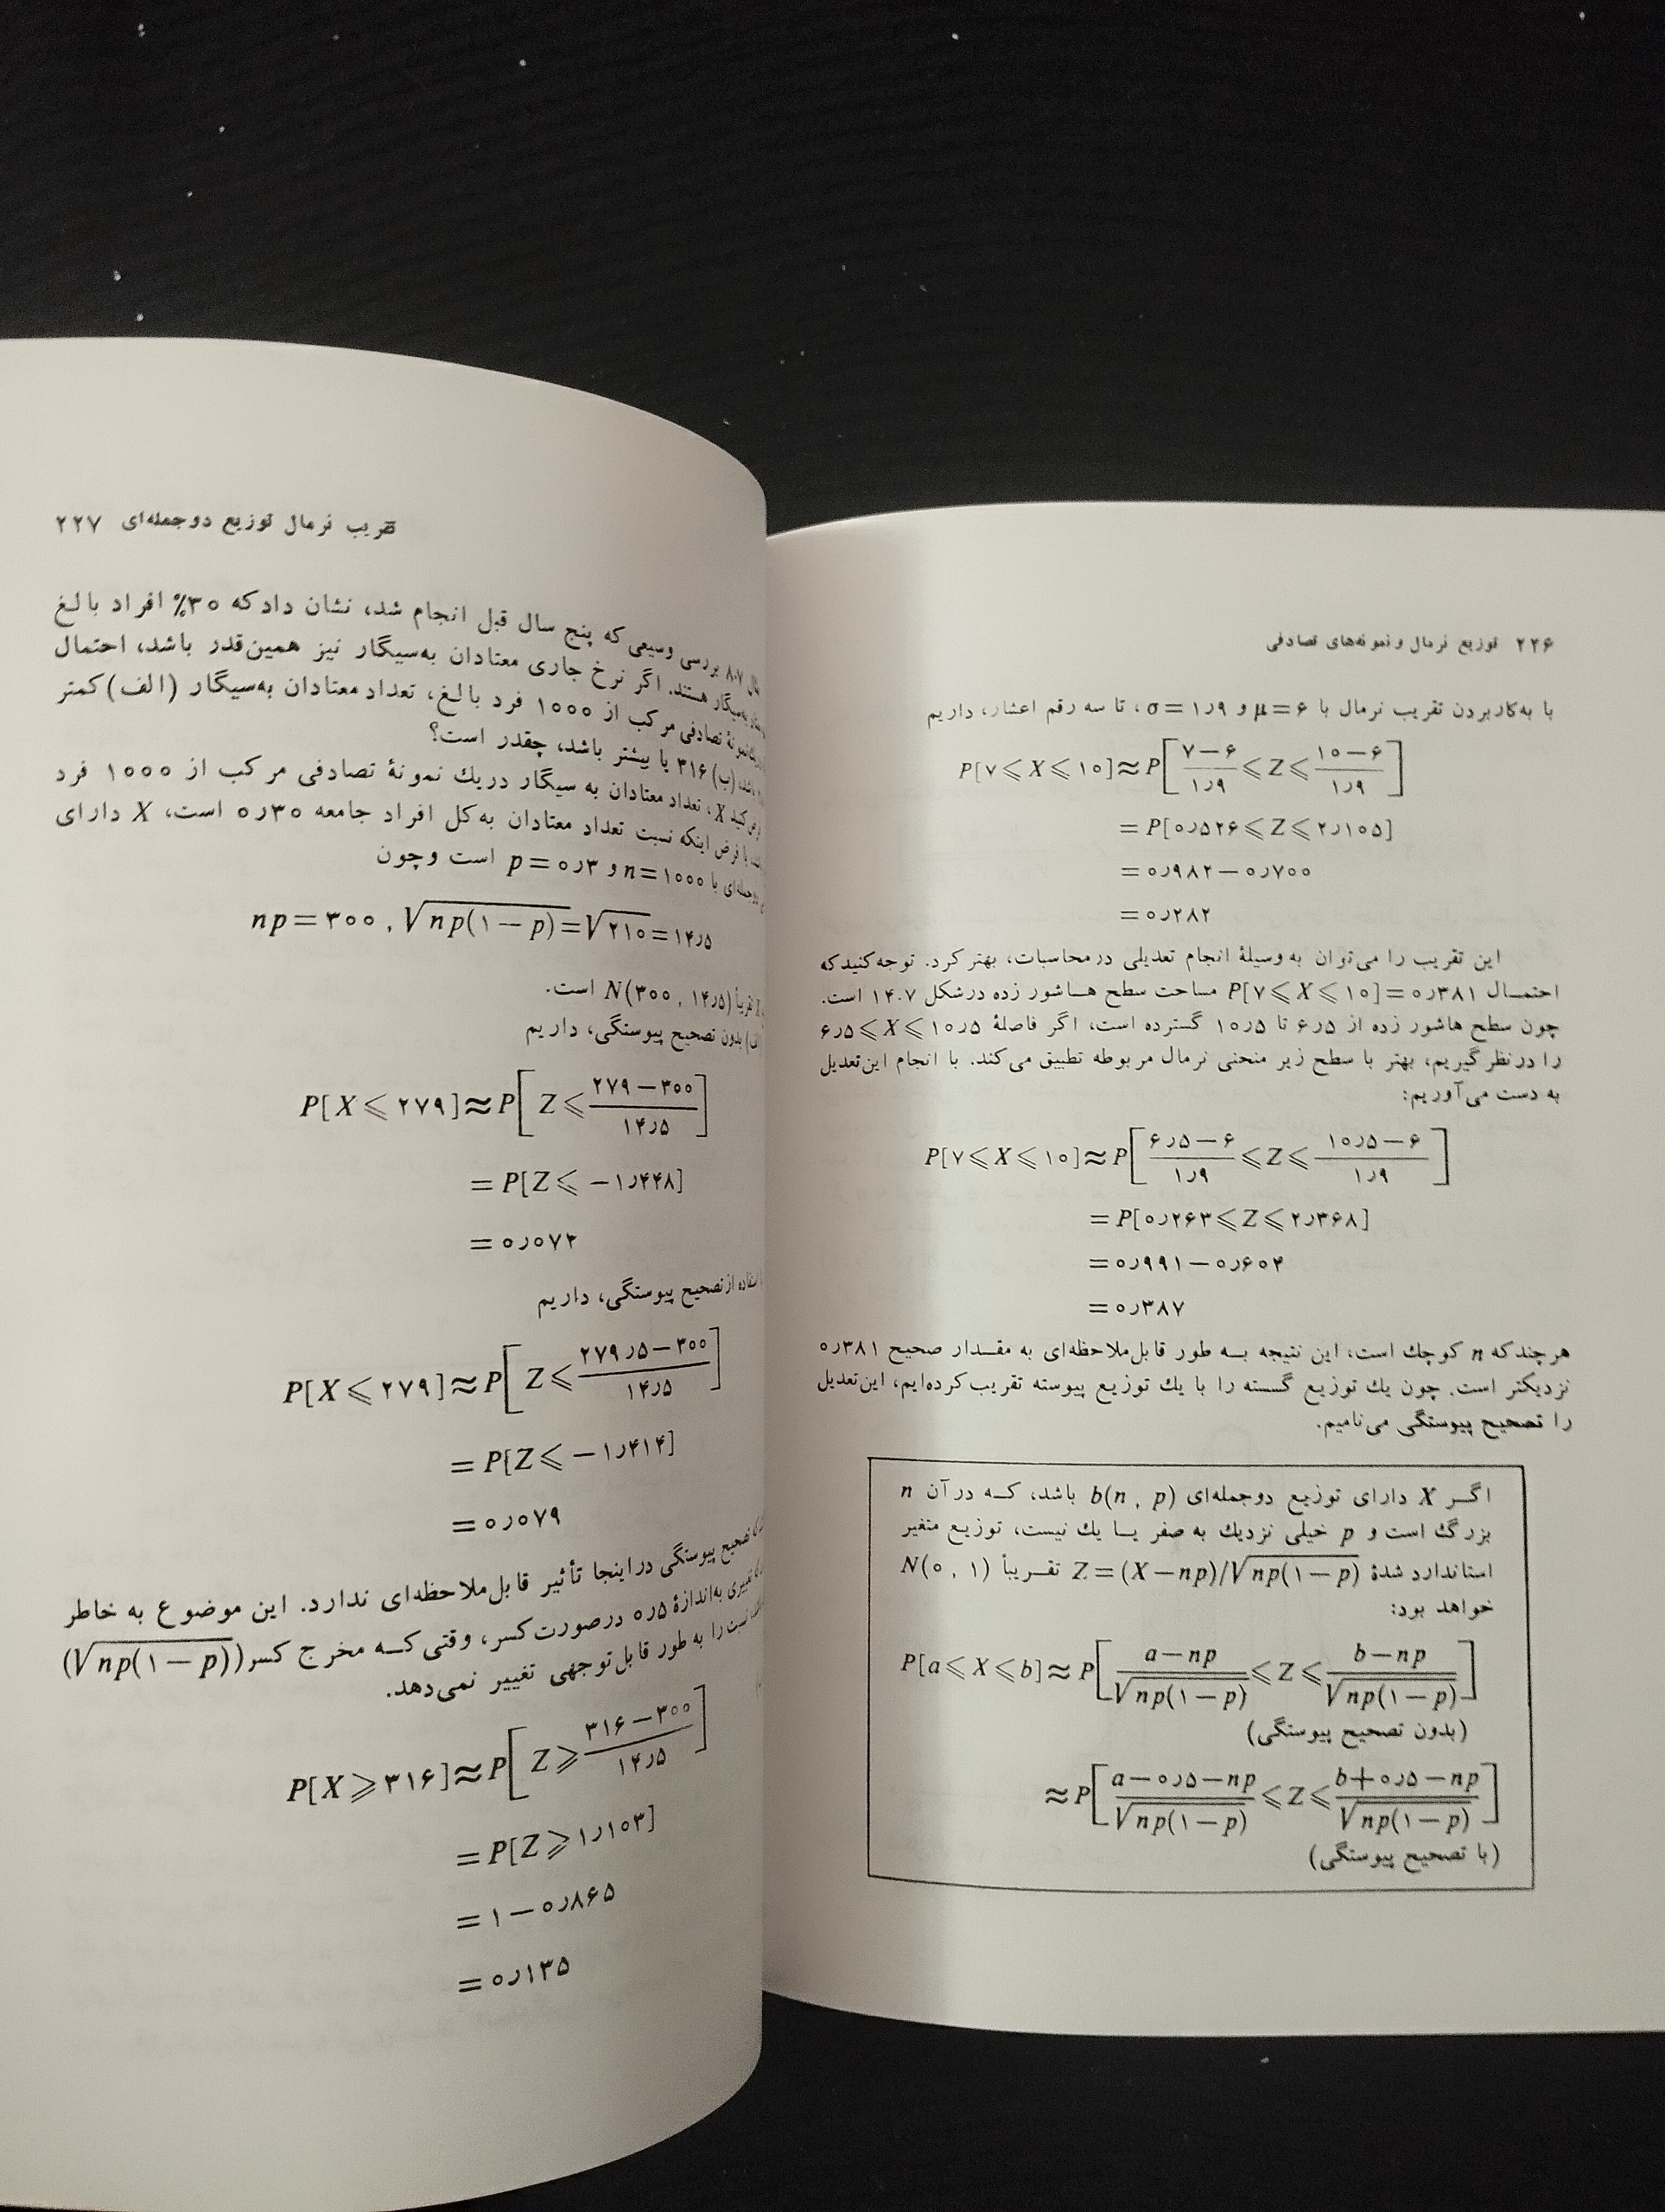 ۲۲۶ توزیع نرمال و نمونه‌های تصادفی
با به‌کار بردن تقریب نرمال با μ=۶ و σ=۱٫۹، تا سه رقم اعشار، داریم
P[۷⩽X⩽۱۰]≈P[(۷−۶)/۱٫۹ ⩽Z⩽ (۱۰−۶)/۱٫۹]
=P[۰٫۵۲۶⩽Z⩽۲٫۱۰۵]
=۰٫۹۸۲−۰٫۷۰۰
=۰٫۲۸۲
این تقریب را می‌توان به‌وسیلهٔ انجام تعدیلی در محاسبات، بهتر کرد. توجه کنید که
احتمال P[۷⩽X⩽۱۰]=۰٫۳۸۱ مساحت سطح هاشور زده در شکل ۱۴.۷ است.
چون سطح هاشور زده از ۶٫۵ تا ۱۰٫۵ گسترده است، اگر فاصلهٔ ۶٫۵⩽X⩽۱۰٫۵
را در نظر گیریم، بهتر با سطح زیر منحنی نرمال مربوطه تطبیق می‌کند. با انجام این تعدیل
به دست می‌آوریم:
P[۷⩽X⩽۱۰]≈P[(۶٫۵−۶)/۱٫۹ ⩽Z⩽ (۱۰٫۵−۶)/۱٫۹]
=P[۰٫۲۶۳⩽Z⩽۲٫۳۶۸]
=۰٫۹۹۱−۰٫۶۰۴
=۰٫۳۸۷
هرچند که n کوچك است، این نتیجه به طور قابل‌ملاحظه‌ای به مقدار صحیح ۰٫۳۸۱
نزدیکتر است. چون یك توزیع گسسته را با یك توزیع پیوسته تقریب کرده‌ایم، این تعدیل
را تصحیح پیوستگی می‌نامیم.
اگر X دارای توزیع دوجمله‌ای b(n , p) باشد، که در آن n
بزرگ است و p خیلی نزدیك به صفر یا یك نیست، توزیع متغیر
استاندارد شدهٔ Z=(X−np)/√np(۱−p) تقریباً N(۰ , ۱)
خواهد بود:
P[a⩽X⩽b]≈P[(a−np)/√np(۱−p) ⩽Z⩽ (b−np)/√np(۱−p)]
(بدون تصحیح پیوستگی)
≈P[(a−۰٫۵−np)/√np(۱−p) ⩽Z⩽ (b+۰٫۵−np)/√np(۱−p)]
(با تصحیح پیوستگی)
تقریب نرمال توزیع دوجمله‌ای ۲۲۷
۸.۷ بررسی وسیعی که پنج سال قبل انجام شد، نشان داد که ۳۰٪ افراد بالغ
به‌سیگار هستند. اگر نرخ جاری معتادان به‌سیگار نیز همین‌قدر باشد، احتمال
نمونهٔ تصادفی مرکب از ۱۰۰۰ فرد بالغ، تعداد معتادان به‌سیگار (الف) کمتر
باشد، (ب) ۳۱۶ یا بیشتر باشد، چقدر است؟
کنید X، تعداد معتادان به سیگار در یك نمونهٔ تصادفی مرکب از ۱۰۰۰ فرد
با فرض اینکه نسبت تعداد معتادان به کل افراد جامعه ۰٫۳۰ است، X دارای
دوجمله‌ای با n=۱۰۰۰ و p=۰٫۳ است و چون
np=۳۰۰ , √np(۱−p)=√۲۱۰=۱۴٫۵
تقریباً N(۳۰۰ , ۱۴٫۵) است.
بدون تصحیح پیوستگی، داریم
P[X⩽۲۷۹]≈P[Z⩽ (۲۷۹−۳۰۰)/۱۴٫۵]
=P[Z⩽−۱٫۴۴۸]
=۰٫۰۷۴
استفاده از تصحیح پیوستگی، داریم
P[X⩽۲۷۹]≈P[Z⩽ (۲۷۹٫۵−۳۰۰)/۱۴٫۵]
=P[Z⩽−۱٫۴۱۴]
=۰٫۰۷۹
تصحیح پیوستگی در اینجا تأثیر قابل‌ملاحظه‌ای ندارد. این موضوع به خاطر
تغییری به‌اندازهٔ ۰٫۵ در صورت کسر، وقتی که مخرج کسر (√np(۱−p))
را به طور قابل‌توجهی تغییر نمی‌دهد.
P[X⩾۳۱۶]≈P[Z⩾ (۳۱۶−۳۰۰)/۱۴٫۵]
=P[Z⩾۱٫۱۰۳]
=۱−۰٫۸۶۵
=۰٫۱۳۵